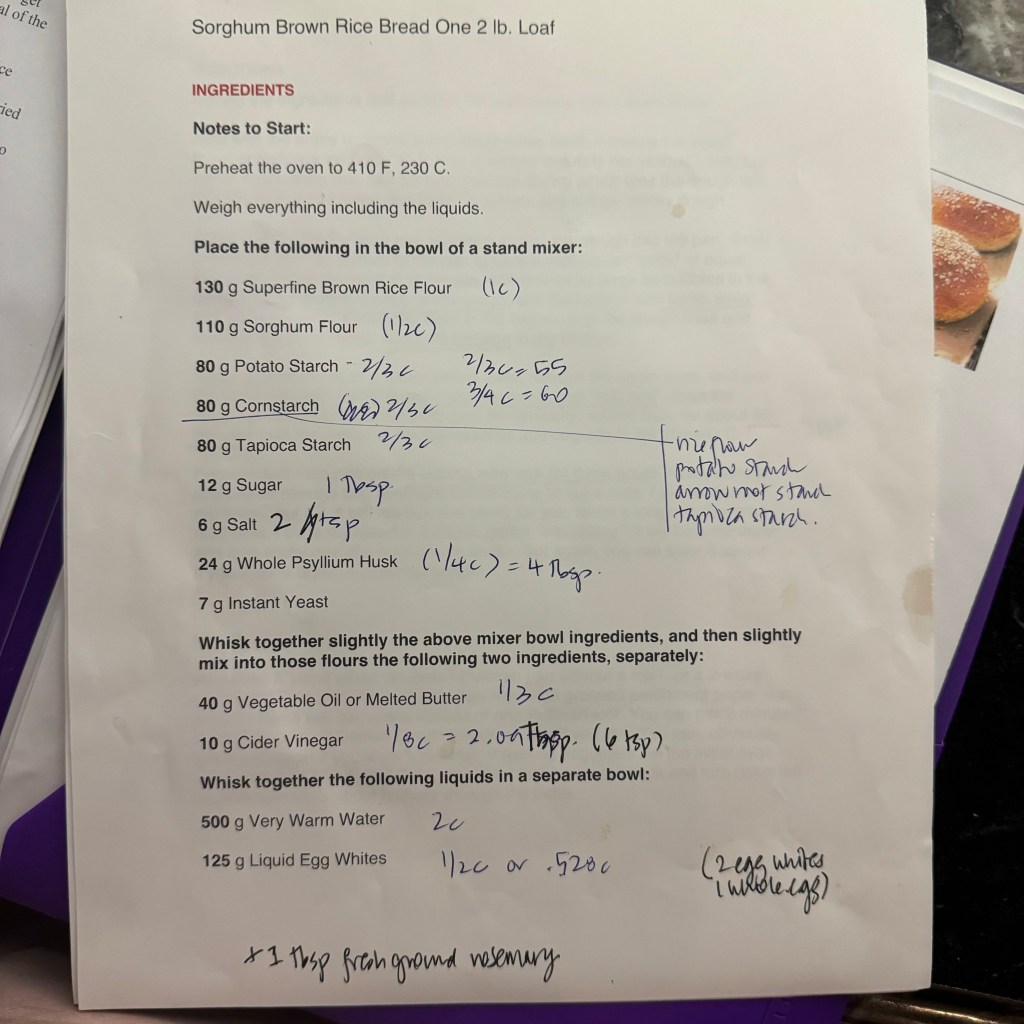 al of the
ce
ied
Sorghum Brown Rice Bread One 2 lb. Loaf
INGREDIENTS
Notes to Start:
Preheat the oven to 410 F, 230 C.
Weigh everything including the liquids.
Place the following in the bowl of a stand mixer:
130 g Superfine Brown Rice Flour (1c)
110 g Sorghum Flour (1/2c)
80 g Potato Starch - 2/3 c 2/3 c = 55
80 g Cornstarch 2/3 c 3/4 c = 60
80 g Tapioca Starch 2/3 c
rice flour
potato starch
arrowroot starch
tapioca starch.
12 g Sugar 1 Tbsp.
6 g Salt 2 tsp
24 g Whole Psyllium Husk (1/4c) = 4 Tbsp.
7 g Instant Yeast
Whisk together slightly the above mixer bowl ingredients, and then slightly
mix into those flours the following two ingredients, separately:
40 g Vegetable Oil or Melted Butter 1/3 c
10 g Cider Vinegar 1/8c = 2.09 Tbsp. (6 tsp)
Whisk together the following liquids in a separate bowl:
500 g Very Warm Water 2c
125 g Liquid Egg Whites 1/2c or .528c
(2 egg whites
1 whole egg)
+ 1 tbsp fresh ground rosemary